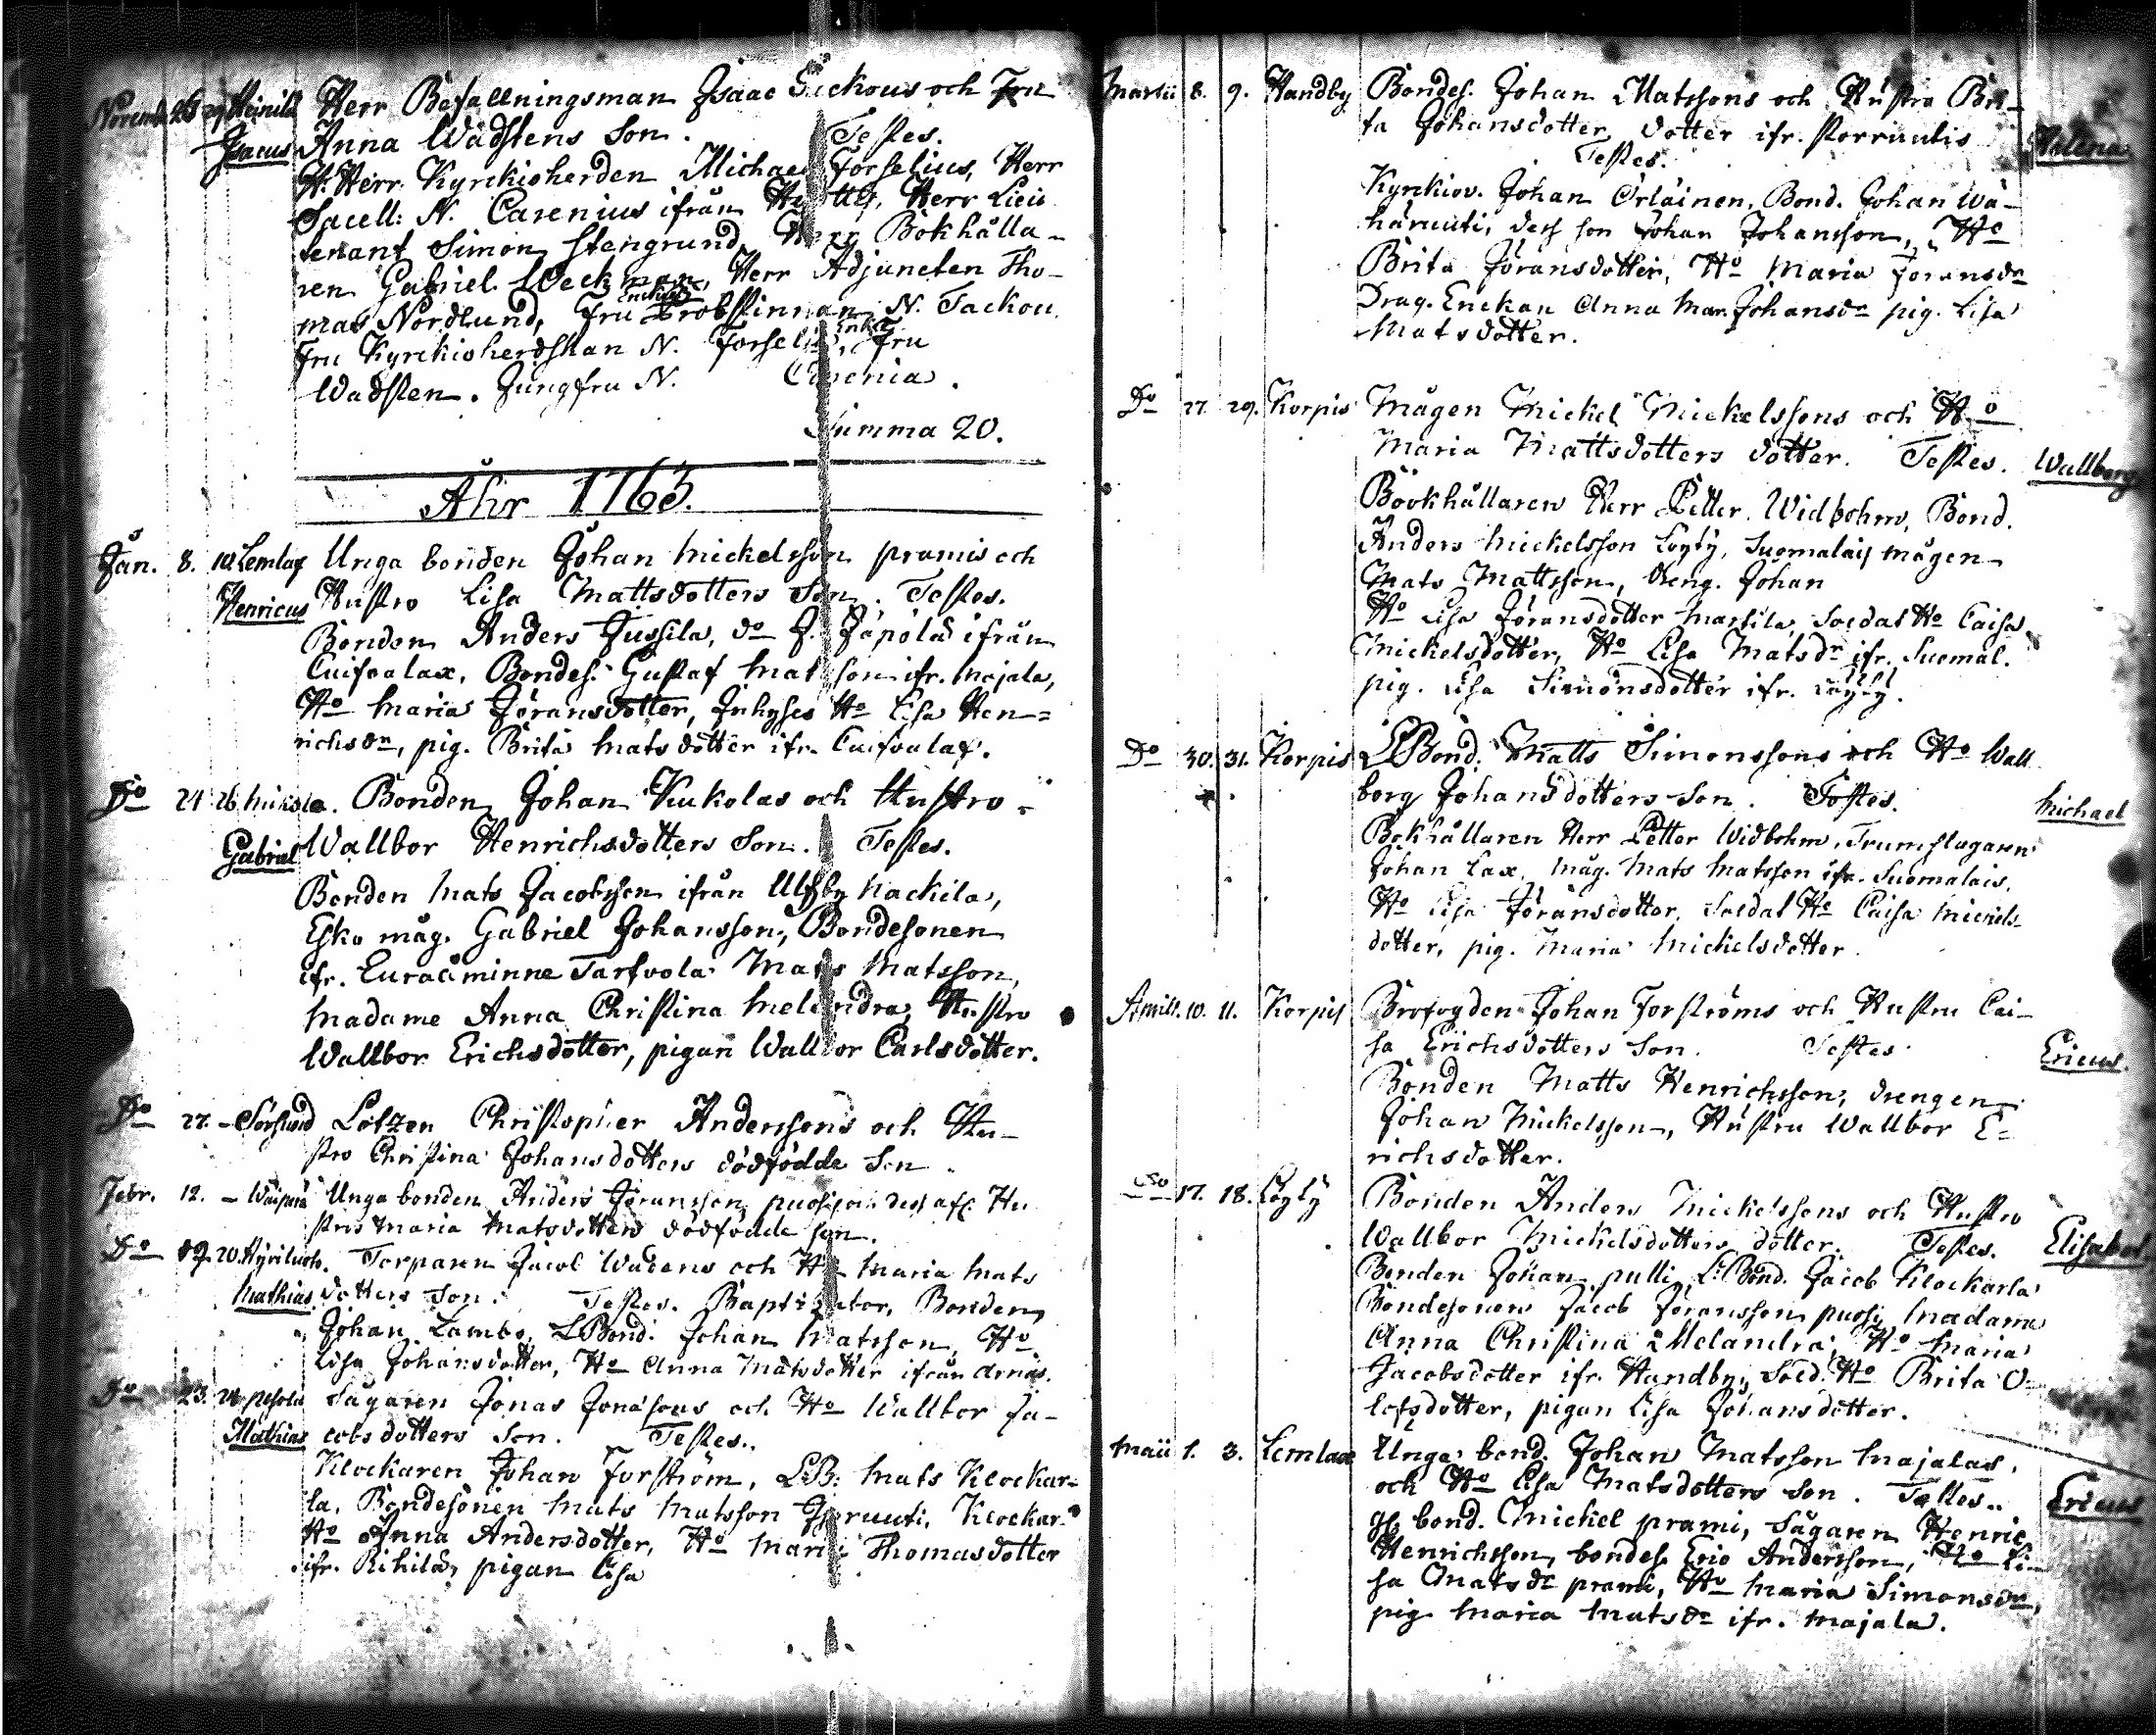 Novemb. 26 29 Heinilä Herr Befallningsman Isaac Säckous och Fru
Isacus Anna Wadstens Son. Testes.
H. Herr Kyrckioherden Michael Forselius, Herr
Sacell: N. Carenius ifrån Herr Lieu
tenant Simon Stengrund, Herr Bokhålla-
ren Gabriel Weckman, Herr Adjuncten Tho-
mas Nordlund, Fru Enckie Probstinnan N. Tackou.
Fru Kyrckioherdskan N. Forselia, Enk. Fru
Wadsten. Jungfru N. Carenia.
Summa 20.
Åhr 1763.
Jan. 8. 10. Lemlax Unga bonden Johan Mickelsson pramis och
Henricus Hustro Lisa Mattsdotters Son. Testes.
Bonden Anders Jussila, do J. Jäpölä ifrån
Cuifvalax, Bondes. Gustaf Matsson ifr. Majala,
Ho Maria Jöransdotter, Inhyses Ho Lisa Hen=
richsdr, pig. Brita Matsdotter ifr. Cuifvalax.
Do 24 26 Kukola. Bonden Johan Kukolas och Hustro
Gabriel Wallbor Henrichsdotters Son. Testes.
Bonden Mats Jacobsson ifrån Ulfsby Hackila,
Esko måg. Gabriel Johansson, Bondesonen
ifr. Euraåminne Tarfvola Mats Matsson,
Madame Anna Christina Melandra, Hustro
Wallbor Erichsdotter, pigan Wallbor Carlsdotter.
Do 27. - Sörsund Lotzen Christopher Anderssons och Hu-
stro Christina Johansdotters dödfödde Son.
Febr. 12. - Unga bonden Anders Jöransson Hu
stros Maria Matsdotters dödfödde son.
Do 19. 20. Torparen Jacob Wadens och Ho Maria Mats
Mathias dotters Son. Testes. Baptizator, Bonden
Johan Lambo, LBond. Johan Matsson, Ho
Lisa Johansdotter, Ho Anna Matsdotter ifrån Arnäs.
Do 23. 24 Pesola Sågaren Jonas Jonasons och Ho Wallbor Ja-
Mathias cobsdotters Son. Testes.
Klockaren Johan Forström, LB: Mats Klockar-
la, Bondesonen Mats Matsson Isoruuti, Klockar.
Ho Anna Andersdotter, Ho Maria Thomasdotter
ifr. Rihila, pigan Lisa
Martii 8. 9. Handby Bondes. Johan Matssons och Hustro Bri-
ta Johansdotter dotter ifr. Porruutis Helena
Testes.
Kyrckiov. Johan Örläinen, Bond. Johan Wä-
häruuti, dess son Johan Johansson, Ho
Brita Jöransdotter, Ho Maria Jöransdr
Drag. Enckan Anna Mar. Johansdr pig. Lisa
Matsdotter.
Do 27. 29. Korpis Mågen Mickel Mickelssons och Ho
Maria Mattsdotters dotter. Testes. Wallborg
Bookhållaren Herr Petter Widbohm, Bond.
Anders Mickelsson Löyty, Suomalais mågen
Mats Mattsson, dreng. Johan
Ho Lisa Jöransdotter Marsila, Soldat Ho Caisa
Mickelsdotter, Ho Lisa Matsdr ifr. Suomal.
pig. Lisa Simonsdotter ifr. Löyty.
Do 30. 31. Korpis LBond. Matts Simonssons och Ho Wall
borg Johansdotters Son. Testes. Michael
Bokhållaren Herr Petter Widbohm, Trumslagaren
Johan Lax, måg. Mats Matsson ifr. Suomalais,
Ho Lisa Jöransdotter, Soldat Ho Caisa Mickels-
dotter, pig. Maria Mickelsdotter.
Aprill. 10. 11. Korpis Brofogden Johan Forströms och Hustru Cai-
sa Erichsdotters Son. Testes. Ericus.
Bonden Matts Henrichsson, drengen
Johan Mickelsson, Hustru Wallbor E=
richsdotter.
Do 17. 18. Löyty Bonden Anders Mickelssons och Hustro
Wallbor Mickelsdotters dotter. Testes. Elisabet
Bonden Johan pulli, L: Bond. Jacob Klockarla
Bondesonen Jacob Jöransson puosi, Madame
Anna Christina Melandra, Ho Maria
Jacobsdotter ifr. Handby, Sold. Ho Brita O-
lofsdotter, pigan Lisa Johansdotter.
Maii 1. 3. Lemlax Unga bond. Johan Matsson Majalas,
och Ho Lisa Matsdotters Son. Testes. Ericus
Gl. bond. Mickel prami, Sågaren Henric
Henrichsson, bondes. Eric Andersson, Ho Li-
sa Matsdr prami, Ho Maria Simonsdr,
pig. Maria Matsdr ifr. Majala.